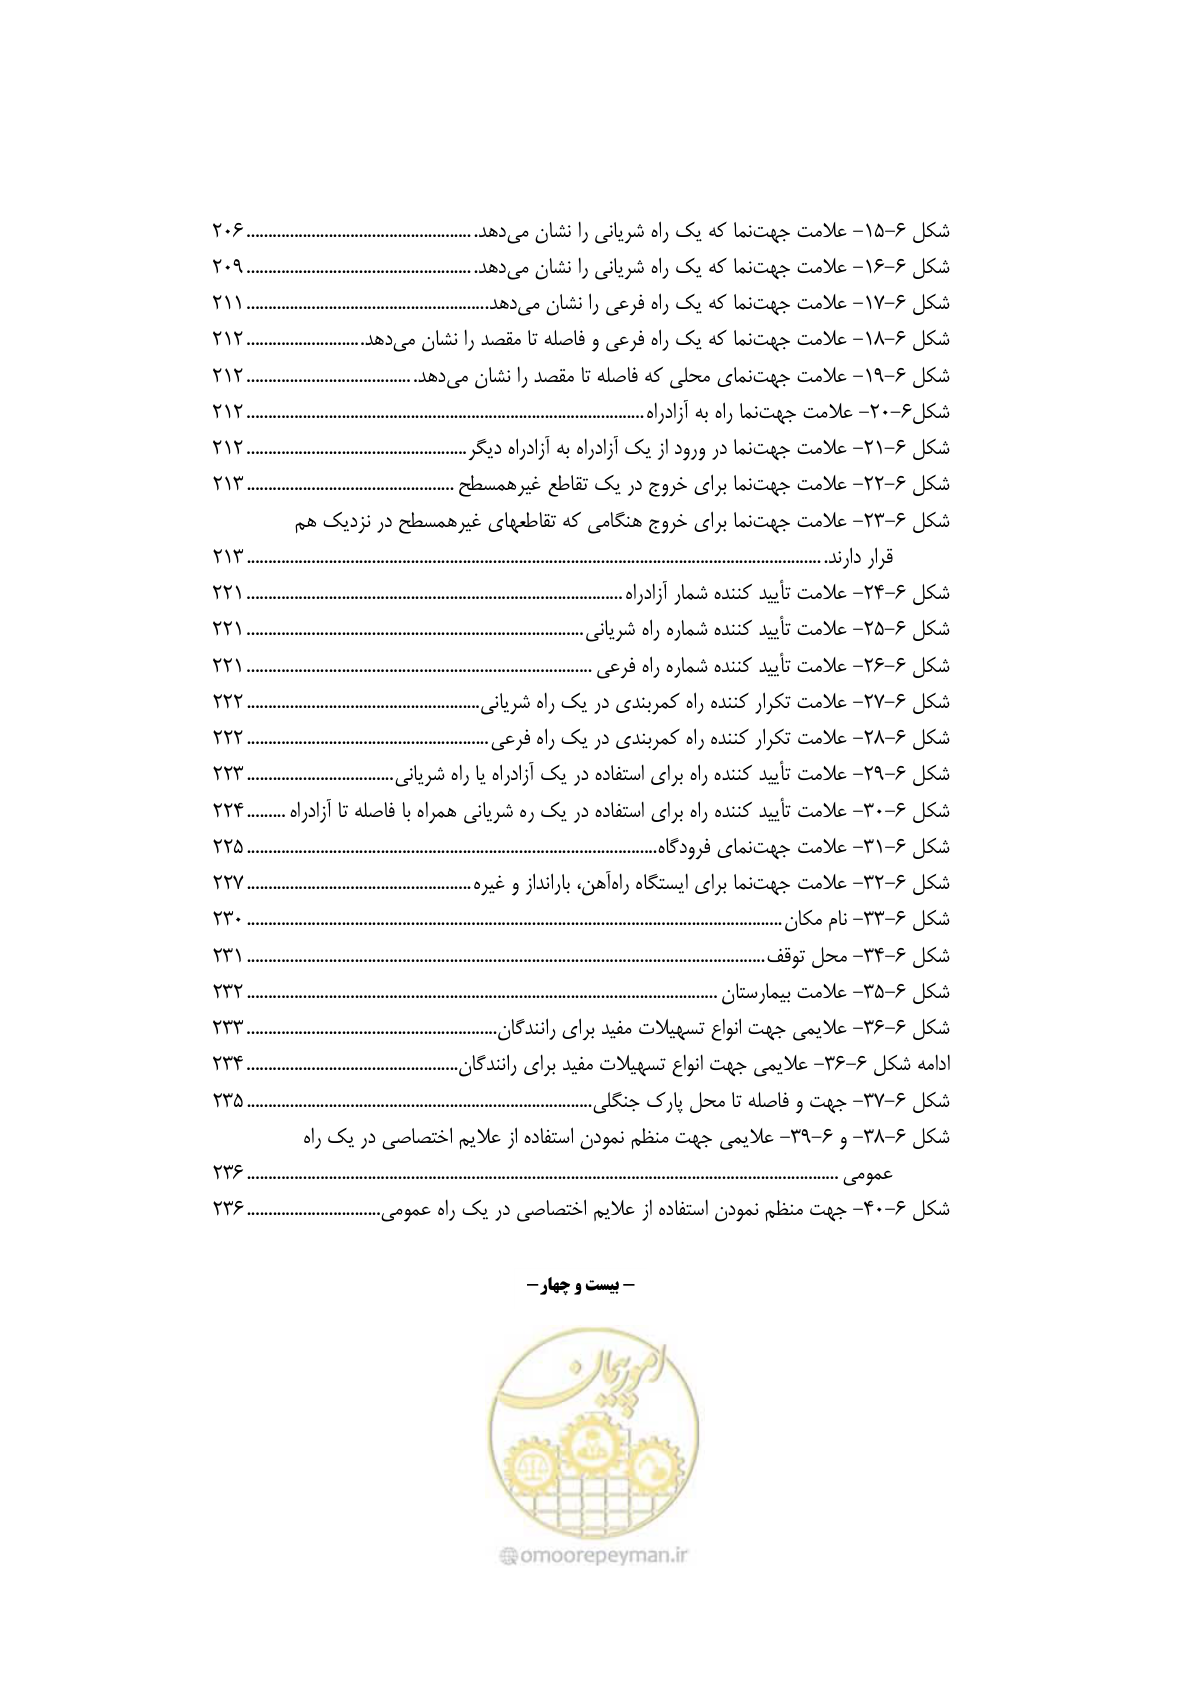 شکل ۶-۱۵- علامت جهت‌نما که یک راه شریانی را نشان می‌دهد. ۲۰۶
شکل ۶-۱۶- علامت جهت‌نما که یک راه شریانی را نشان می‌دهد. ۲۰۹
شکل ۶-۱۷- علامت جهت‌نما که یک راه فرعی را نشان می‌دهد. ۲۱۱
شکل ۶-۱۸- علامت جهت‌نما که یک راه فرعی و فاصله تا مقصد را نشان می‌دهد. ۲۱۲
شکل ۶-۱۹- علامت جهت‌نمای محلی که فاصله تا مقصد را نشان می‌دهد. ۲۱۲
شکل۶-۲۰- علامت جهت‌نما راه به آزادراه ۲۱۲
شکل ۶-۲۱- علامت جهت‌نما در ورود از یک آزادراه به آزادراه دیگر ۲۱۲
شکل ۶-۲۲- علامت جهت‌نما برای خروج در یک تقاطع غیرهمسطح ۲۱۳
شکل ۶-۲۳- علامت جهت‌نما برای خروج هنگامی که تقاطعهای غیرهمسطح در نزدیک هم
قرار دارند. ۲۱۳
شکل ۶-۲۴- علامت تأیید کننده شمار آزادراه ۲۲۱
شکل ۶-۲۵- علامت تأیید کننده شماره راه شریانی ۲۲۱
شکل ۶-۲۶- علامت تأیید کننده شماره راه فرعی ۲۲۱
شکل ۶-۲۷- علامت تکرار کننده راه کمربندی در یک راه شریانی ۲۲۲
شکل ۶-۲۸- علامت تکرار کننده راه کمربندی در یک راه فرعی ۲۲۲
شکل ۶-۲۹- علامت تأیید کننده راه برای استفاده در یک آزادراه یا راه شریانی ۲۲۳
شکل ۶-۳۰- علامت تأیید کننده راه برای استفاده در یک ره شریانی همراه با فاصله تا آزادراه ۲۲۴
شکل ۶-۳۱- علامت جهت‌نمای فرودگاه ۲۲۵
شکل ۶-۳۲- علامت جهت‌نما برای ایستگاه راه‌آهن، بارانداز و غیره ۲۲۷
شکل ۶-۳۳- نام مکان ۲۳۰
شکل ۶-۳۴- محل توقف ۲۳۱
شکل ۶-۳۵- علامت بیمارستان ۲۳۲
شکل ۶-۳۶- علایمی جهت انواع تسهیلات مفید برای رانندگان ۲۳۳
ادامه شکل ۶-۳۶- علایمی جهت انواع تسهیلات مفید برای رانندگان ۲۳۴
شکل ۶-۳۷- جهت و فاصله تا محل پارک جنگلی ۲۳۵
شکل ۶-۳۸- و ۶-۳۹- علایمی جهت منظم نمودن استفاده از علایم اختصاصی در یک راه
عمومی ۲۳۶
شکل ۶-۴۰- جهت منظم نمودن استفاده از علایم اختصاصی در یک راه عمومی ۲۳۶
- بیست و چهار-
امور پیمان
@omoorepeyman.ir